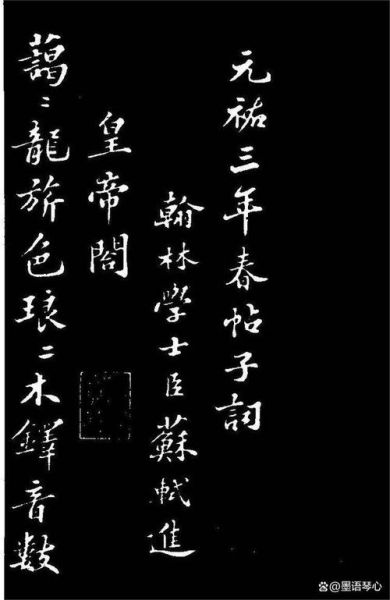 元祐三年春帖子詞
翰林學士臣蘇軾進
皇帝閤
藹〻龍旂色琅〻木鐸音數
@墨语琴心